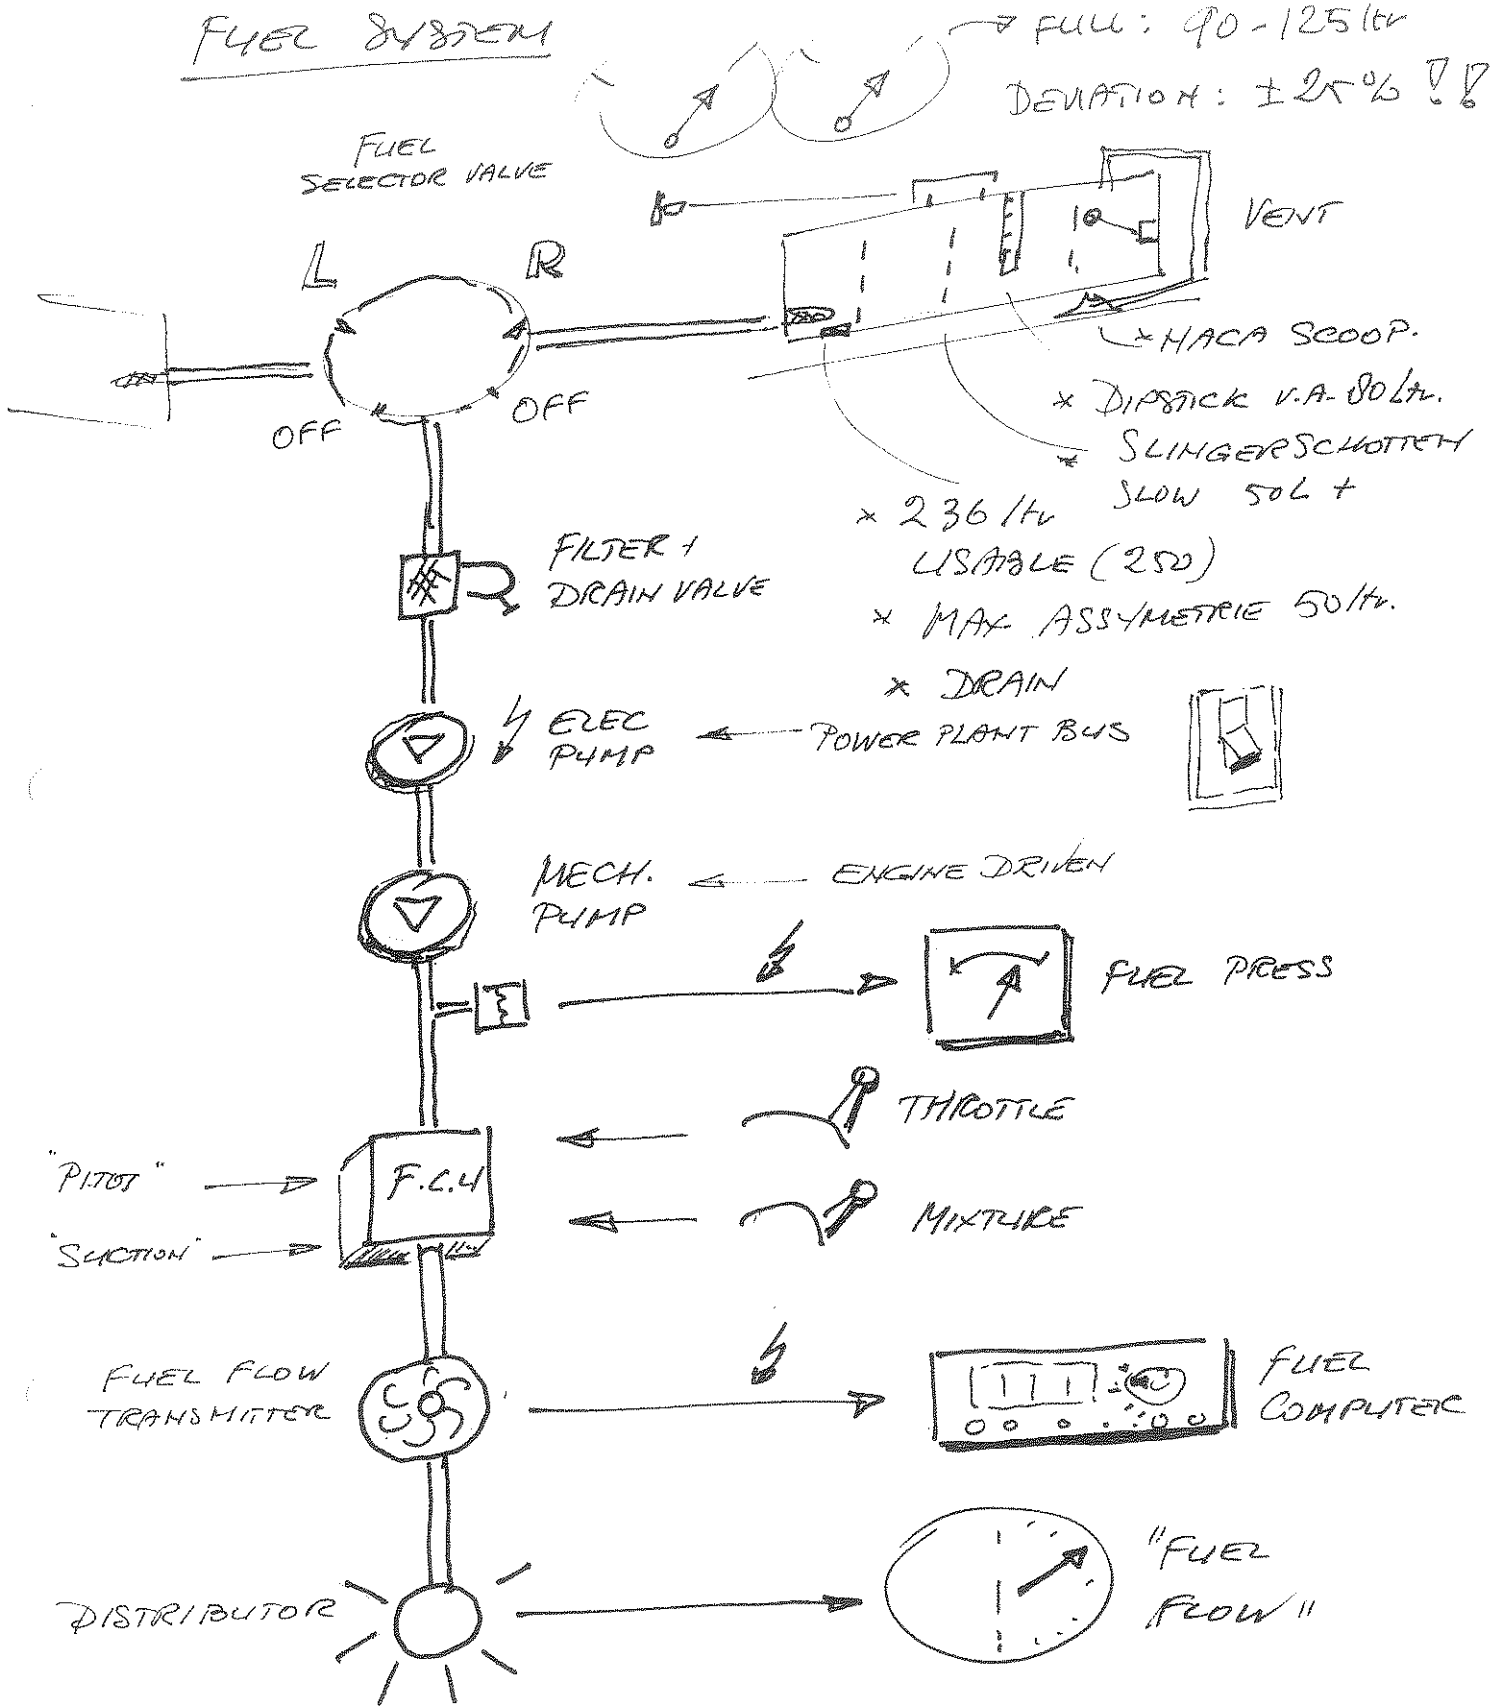 FUEL SYSTEM
FULL: 90-125 ltr
DEVIATION: ± 25% !!
FUEL
SELECTOR VALVE
L
R
VENT
NACA SCOOP.
OFF
OFF
* DIPSTICK V.A. 80 Ltr.
* SLINGERSCHOTTEN
SLOW 50L +
* 236 ltr
USABLE (250)
* MAX ASSYMETRIE 50 ltr.
* DRAIN
FILTER +
DRAIN VALVE
ELEC
PUMP
POWER PLANT BUS
MECH.
PUMP
ENGINE DRIVEN
FUEL PRESS
THROTTLE
"PITOT"
F.C.U
MIXTURE
"SUCTION"
FUEL FLOW
TRANSMITTER
FUEL
COMPUTER
DISTRIBUTOR
"FUEL
FLOW"